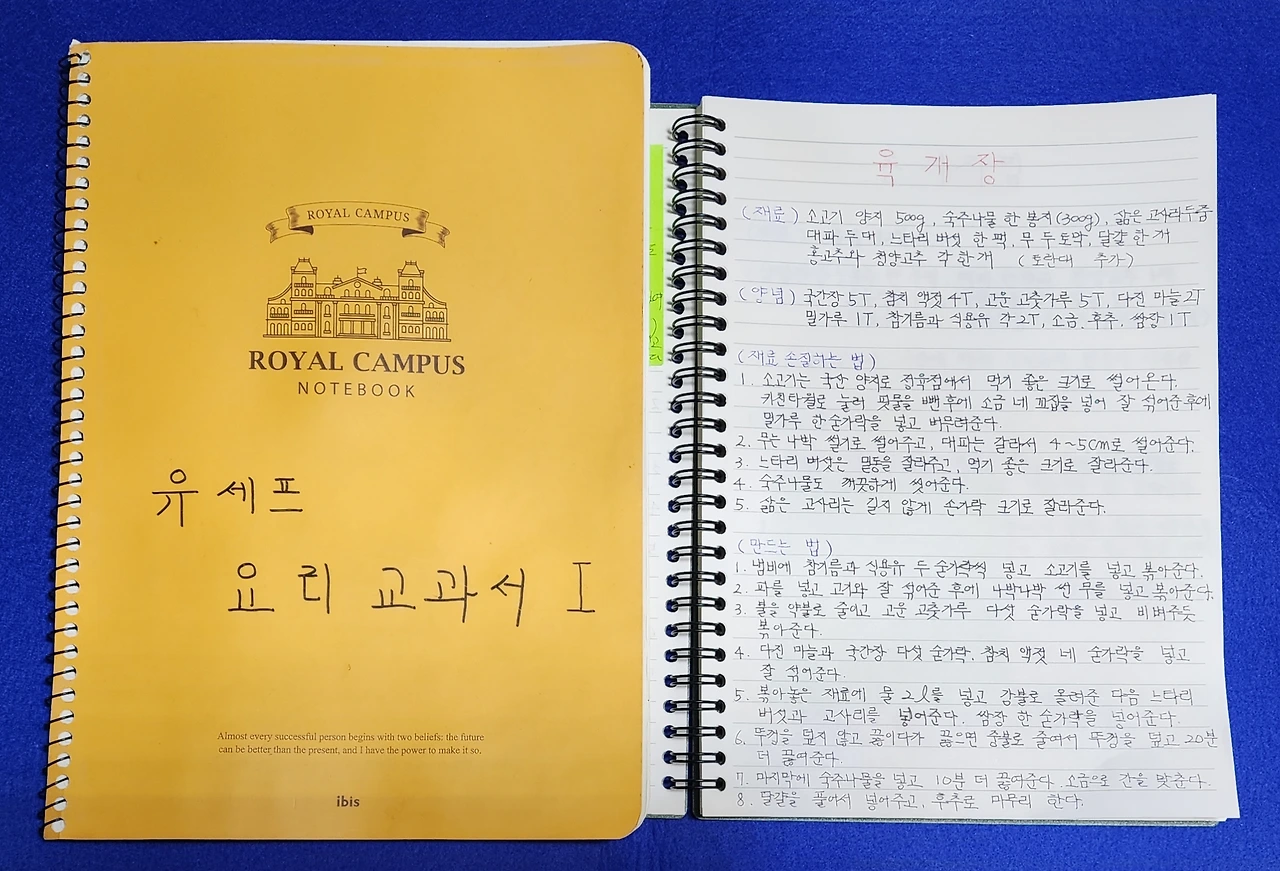 ROYAL CAMPUS
ROYAL CAMPUS
NOTEBOOK
유 세프
요리 교과서 I
Almost every successful person begins with two beliefs: the future
can be better than the present, and I have the power to make it so.
ibis
육 개 장
(재료) 소고기 양지 500g, 숙주나물 한 봉지(300g), 삶은 고사리두줌
대파 두대, 느타리 버섯 한 팩, 무 두토막, 달걀 한개
홍고추와 청양고추 각 한개 (토란대 추가)
(양념) 국간장 5T, 참치 액젓 4T, 고운 고춧가루 5T, 다진 마늘 2T
밀가루 1T, 참기름과 식용유 각 2T, 소금. 후추. 쌈장 1T
(재료 손질하는 법)
1. 소고기는 국산 양지로 정육점에서 먹기 좋은 크기로 썰어온다.
키친타월로 눌러 핏물을 뺀후에 소금 네 꼬집을 넣어 잘 섞어준후에
밀가루 한숟가락을 넣고 버무려준다.
2. 무는 나박 썰기로 썰어주고, 대파는 갈라서 4~5cm로 썰어준다.
3. 느타리 버섯은 밑동을 잘라주고, 먹기 좋은 크기로 잘라준다.
4. 숙주나물도 깨끗하게 씻어준다.
5. 삶은 고사리는 길지 않게 손가락 크기로 잘라준다.
(만드는 법)
1. 냄비에 참기름과 식용유 두 숟가락씩 넣고 소고기를 넣고 볶아준다.
2. 파를 넣고 고기와 잘 섞어준 후에 나박나박 썬 무를 넣고 볶아준다.
3. 불을 약불로 줄이고 고운 고춧가루 다섯 숟가락을 넣고 비벼주듯
볶아준다.
4. 다진 마늘과 국간장 다섯 숟가락, 참치 액젓 네 숟가락을 넣고
잘 섞어준다.
5. 볶아놓은 재료에 물 2l를 넣고 강불로 올려준 다음 느타리
버섯과 고사리를 넣어준다. 쌈장 한 숟가락을 넣어준다.
6. 뚜껑을 덮지 않고 끓이다가 끓으면 중불로 줄여서 뚜껑을 덮고 20분
더 끓여준다.
7. 마지막에 숙주나물을 넣고 10분 더 끓여준다. 소금으로 간을 맞춘다.
8. 달걀을 풀어서 넣어주고, 후추로 마무리 한다.